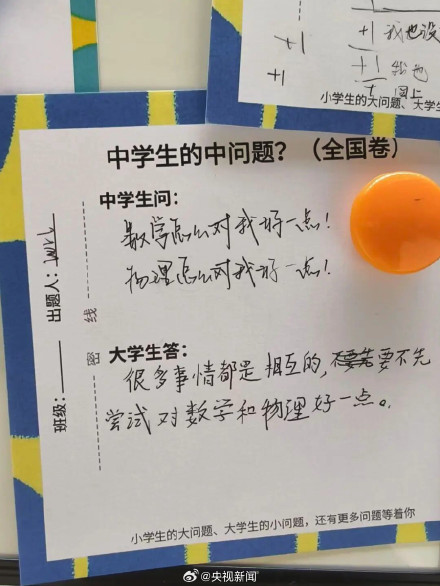 +1
+1 我也没
+1
+1 我也
+ 同上
小学生的大问题、大学生
中学生的中问题？（全国卷）
中学生问：
数学怎么对我好一点！
物理怎么对我好一点！
大学生答：
很多事情都是相互的，要不先
尝试对数学和物理好一点。
班级：
出题人：
密
线
小学生的大问题、大学生的小问题，还有更多问题等着你
@央视新闻